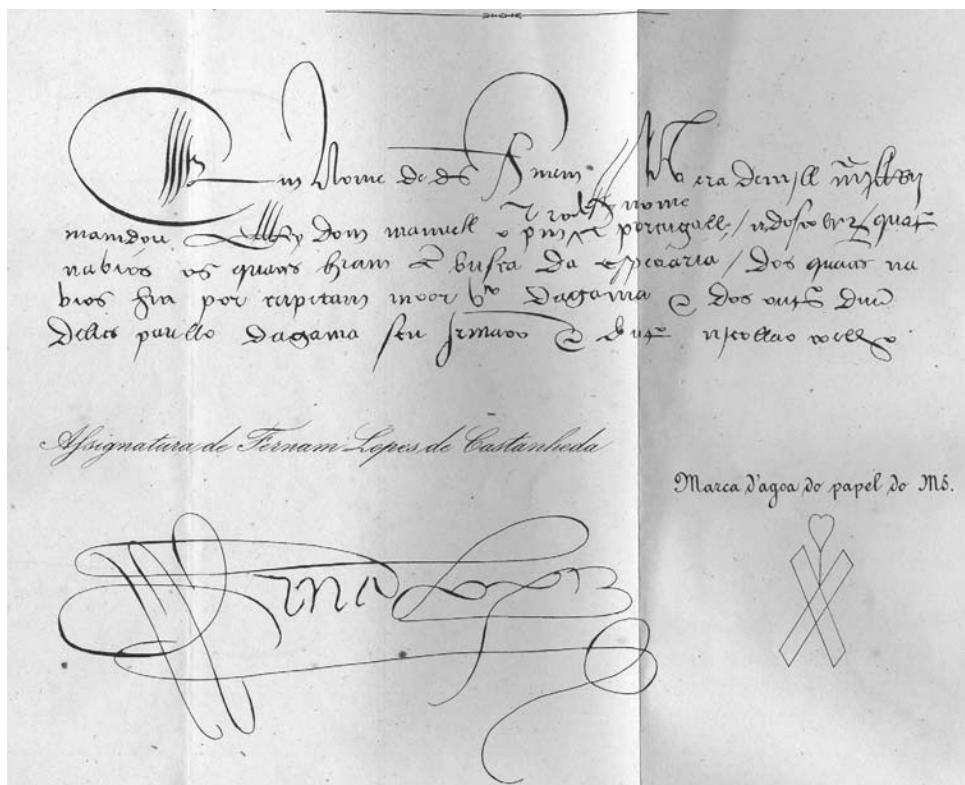 Em Nome de ds Amem. Na era de mjll
mamdou ElRey dom manuell o pro em portugall / a descobrir quatro
nabios os quaaes hiam em busca da especiaria / dos quaaes na
bios hia por capitam moor vco dagama e dos outros duũ
delles paullo dagama seu Jrmaao e doutro njcollao coelho
Assignatura de Fernam Lopes de Castanheda
Marca d'agoa do papel do Ms.